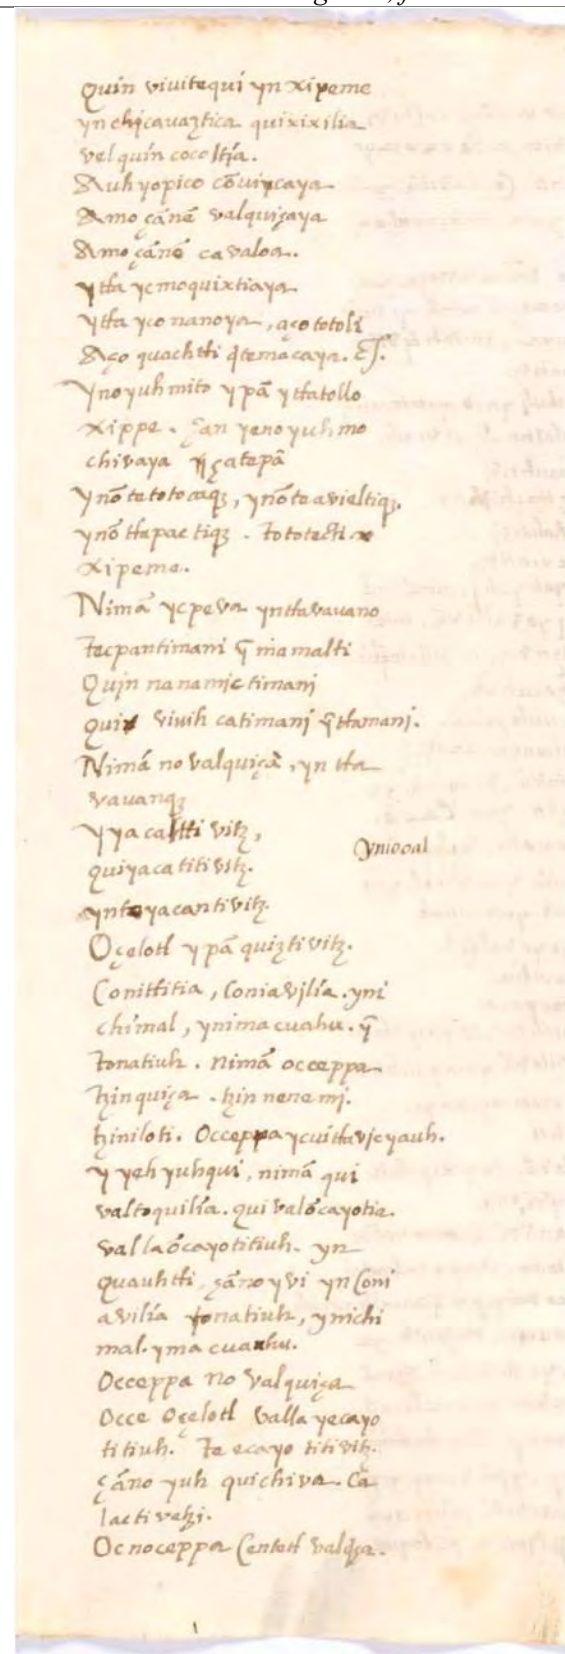 Quin vivitequi yn xipeme
yn chicavaztica quixixilia
vel quin cocoltia.
Auh yopico cōvycaya
Amo çānē valquiçaya
Amo çānē cavaloa.
ytla yc moquixtiaya
ytla yconanoya, aço totoli
Aço quachtli q̄temacaya. etc.
ynoyuh mito ypā ytlatollo
xippe. Çan yenoyuh mo
chivaya yçatepā
ynōtetotocaq̄, ynōteavieltiq̄
ynō tlapactiq̄. tototecti
xipeme.
Nimā ycpeva yntlavavano
tecpantimani ȳ mamalti
Quin nanamictimani
vivih catimani ȳtlamani.
Nimā no valquiçā, yn tla
vavanq̄
yyacattivitz,
ymooal
quiyacatitivitz.
ynteyacantivitz.
Oçelotl ypā quiztivitz.
Conittitia, Coniavilia. yni
chimal, ynimacuahu. ȳ
tonatiuh. Nimā occeppa
tzinquiça. tzinnenemj.
tziniloti. Occeppa ycuitlavicyauh.
y yeh yuhqui, nimā qui
valtoquilia. quivalōcayotia.
vallaōcayotitiuh. yn
quauhtli, çāno yvi yn Coni
avilia tonatiuh, ynichi
mal. yma cuahu.
Occeppa no valquiça
Occe Oçelotl valla yecayo
titiuh. te ecayotitivitz.
çāno yuh quichiva. Ca
lactivetzi.
Oc noceppa Centetl valq̄ça.